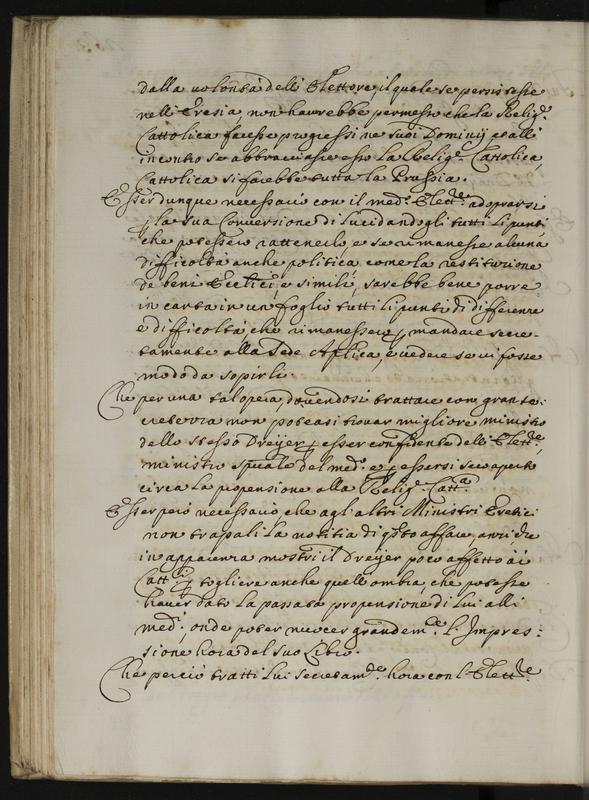 dalla volontà dell'Elettore, il quale se persistesse
nell'Eresia, non haverebbe permesso che la Relig.e
Cattolica facesse progressi ne suoi Dominij, e all'
incontro se abbracciasse esso la Relig.e Cattolica,
Cattolica si farebbe tutta la Prussia.
Esser dunque necessario con il med.o Elett.re adoprarsi
p la sua Conversione dilucidandogli tutti li punti
che potessero rattenerlo, e se vi rimanesse alcuna
difficoltà anche politica come la restituzione
de beni Eccl.ici, e simili, sarebbe bene porre
in carta in un foglio tutti li punti di differenze
e difficoltà, che rimanessero, p mandare secre-
tamente alla Sede Ap.lica, e vedere se vi fosse
modo da sopirli.
Che per una tal opera, dovendosi trattare con gran se-
cretezza non poteasi trovar migliore ministro
dello stesso Dreÿer p esser confidente dell'Elett.re,
ministro sp.uale del med.o e p essersi seco aperto
circa la propensione alla Relig.e Catt.a
Esser però necessario, che agli altri Ministri Eretici
non trapali la notitia di q.sto affare, anzi che
in apparenza mostri il Dreÿer poco affetto à i
Catt.ci p togliere anche quell'ombra, che potesse
haver dato la passata propensione di lui alli
med.i, onde poter nuocer grandem.te l'Impres-
sione hora del suo Libro.
Che perciò tratti lui secretam.te hora con l'Elett.re